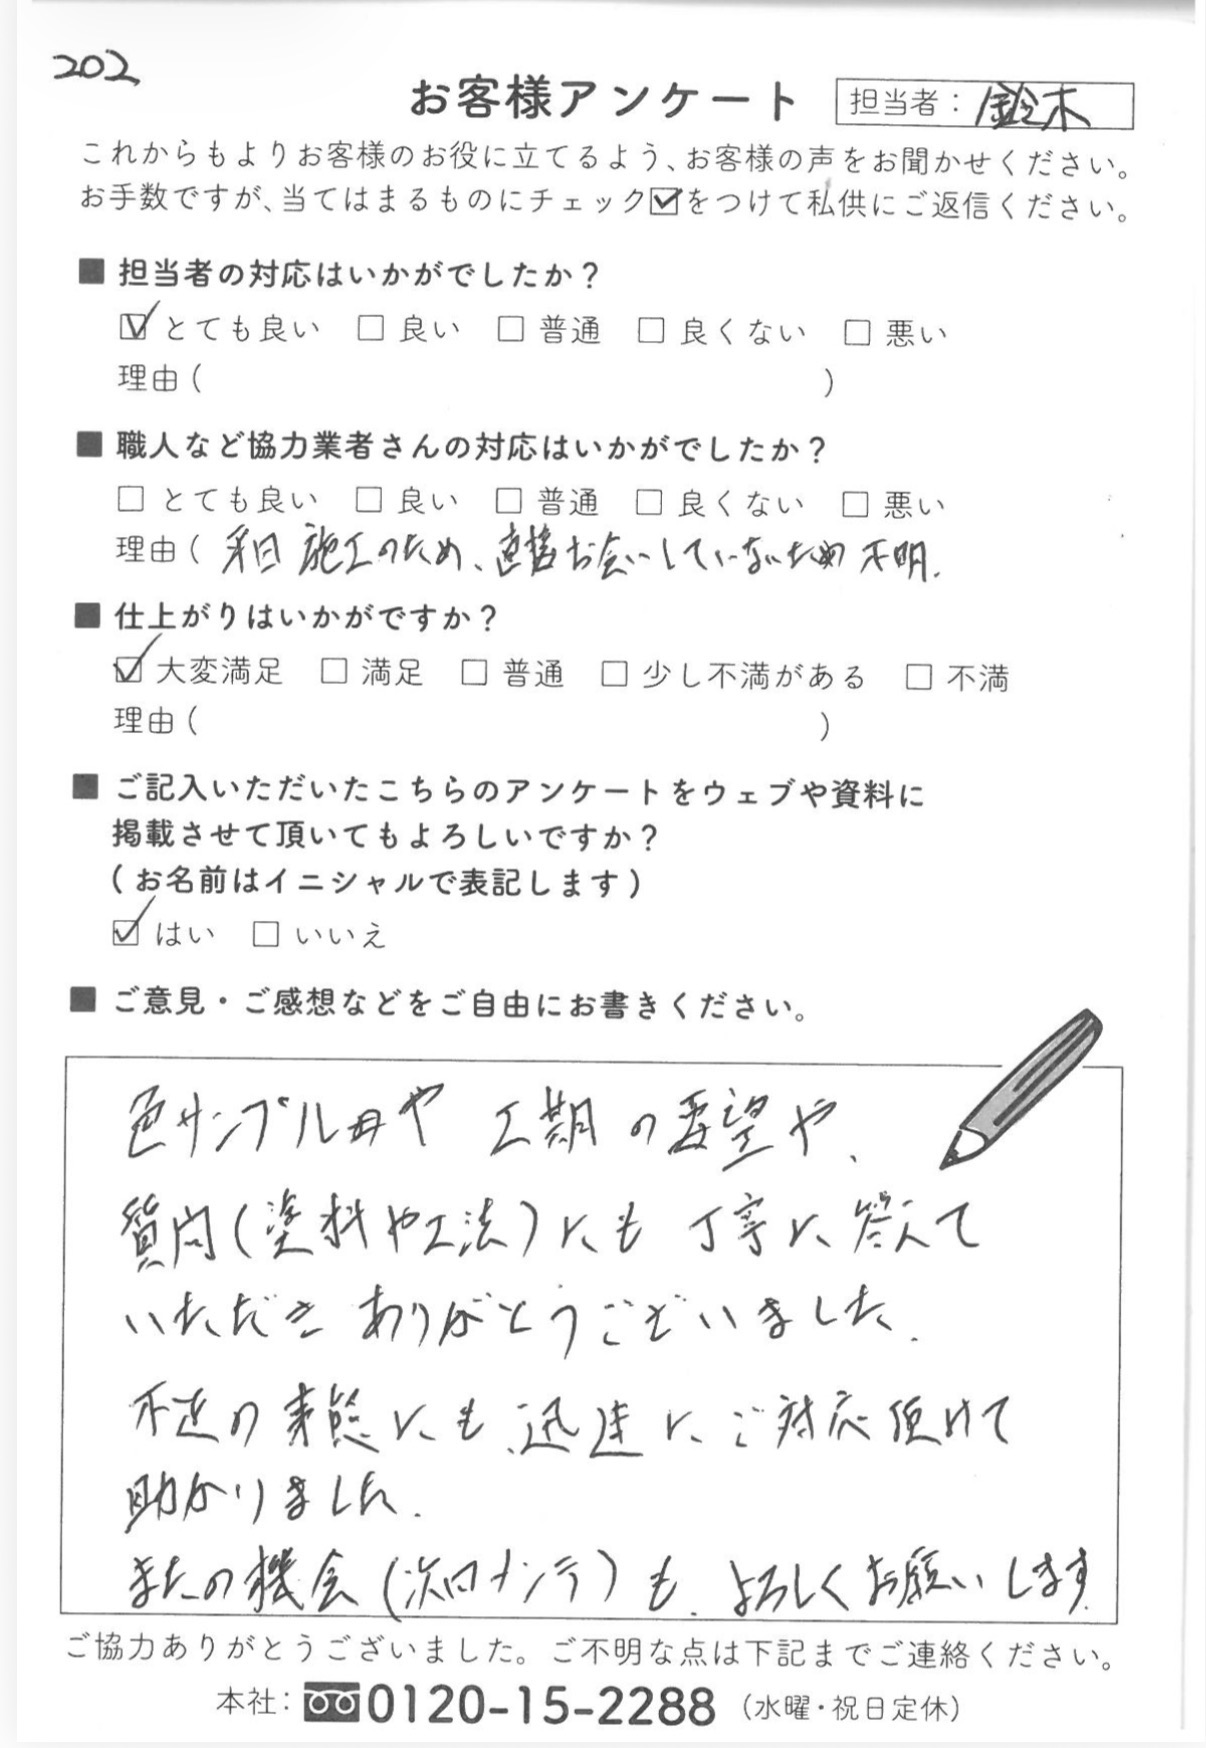 202
お客様アンケート
担当者：鈴木
これからもよりお客様のお役に立てるよう、お客様の声をお聞かせください。
お手数ですが、当てはまるものにチェック☑をつけて私供にご返信ください。
■ 担当者の対応はいかがでしたか？
☑ とても良い □ 良い □ 普通 □ 良くない □ 悪い
理由（ ）
■ 職人など協力業者さんの対応はいかがでしたか？
□ とても良い □ 良い □ 普通 □ 良くない □ 悪い
理由（ 平日 施工のため、直接お会いしていないため 不明.
■ 仕上がりはいかがですか？
☑ 大変満足 □ 満足 □ 普通 □ 少し不満がある □ 不満
理由（ ）
■ ご記入いただいたこちらのアンケートをウェブや資料に
掲載させて頂いてもよろしいですか？
（お名前はイニシャルで表記します）
☑ はい □ いいえ
■ ご意見・ご感想などをご自由にお書きください。
色サンプル や 工期 の 要望 や、
質問（塗料や工法）にも 丁寧に 答えて
いただき ありがとうございました.
不 の 事態にも、迅速に ご対応頂けて
助かりました.
またの機会（次回メンテ）も、よろしくお願いします.
ご協力ありがとうございました。ご不明な点は下記までご連絡ください。
本社：0120-15-2288（水曜・祝日定休）